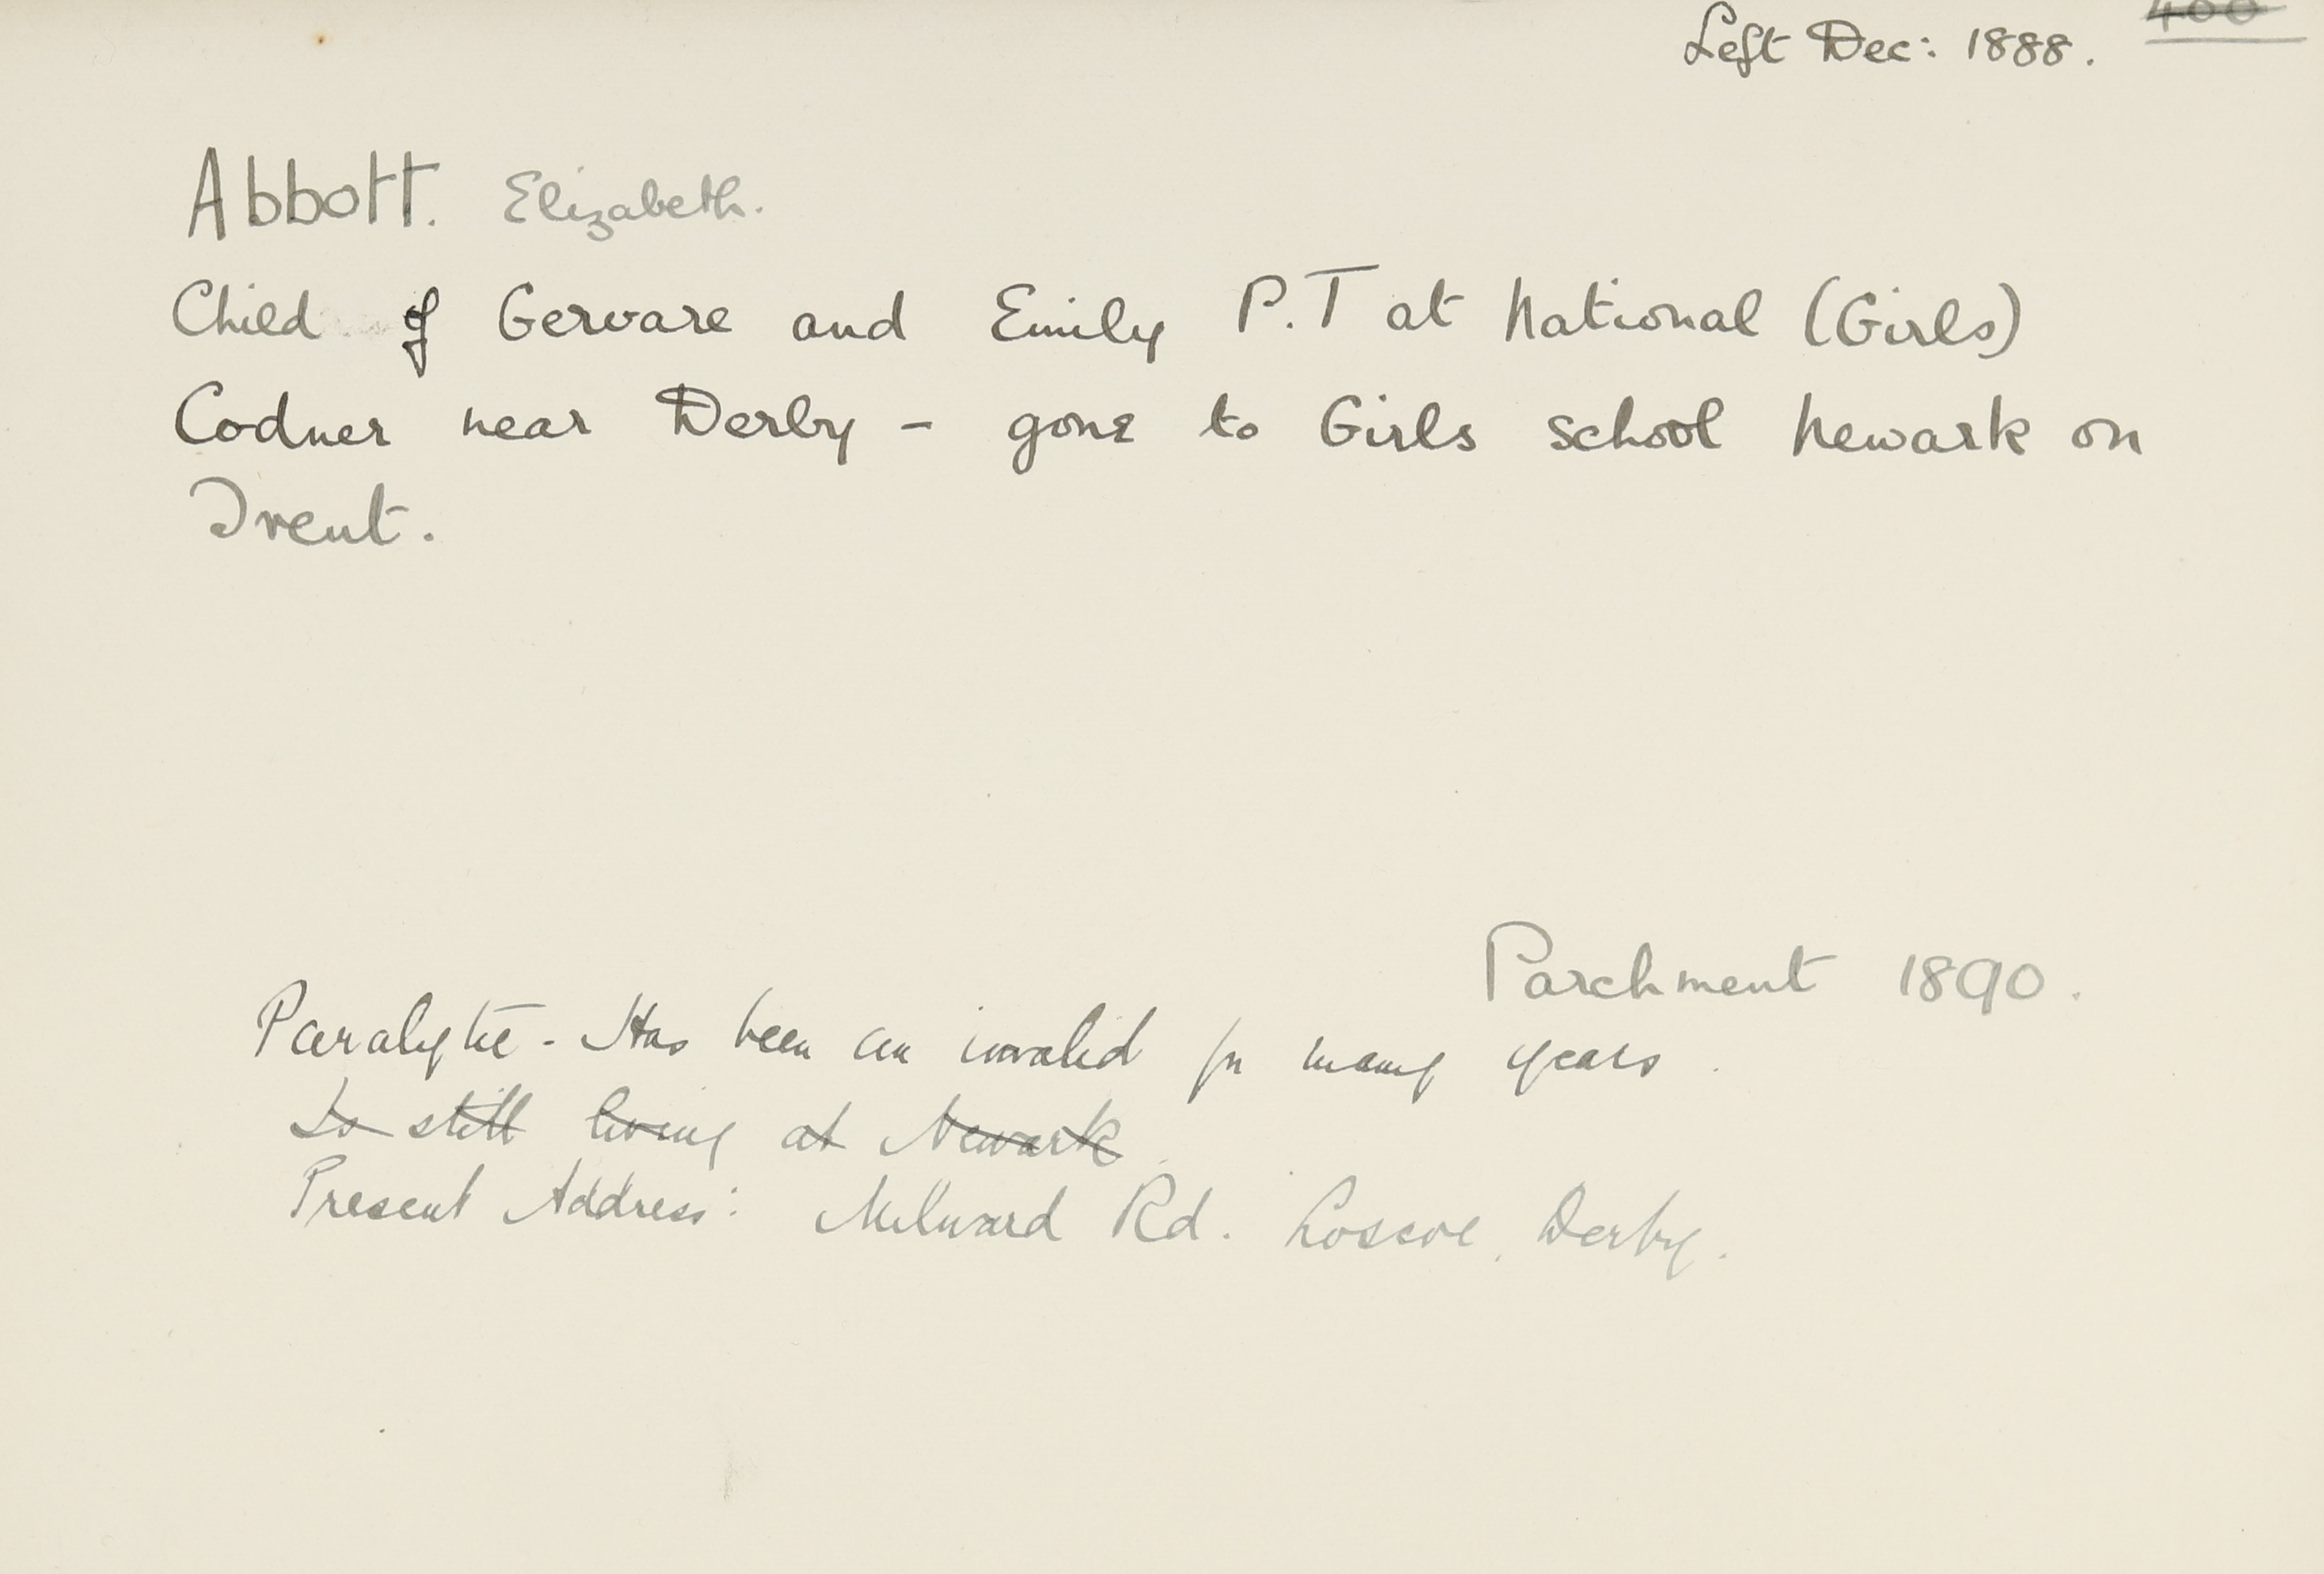 400
Left Dec: 1888.
Abbott. Elizabeth.
Child of Gervare and Emily P.T at National (Girls)
Codner near Derby - gone to Girls school Newark on
Trent.
Parchment 1890.
Paralytic - Has been an invalid for many years.
Is still living at Newark
Present Address: Milward Rd. Loscoe, Derby.